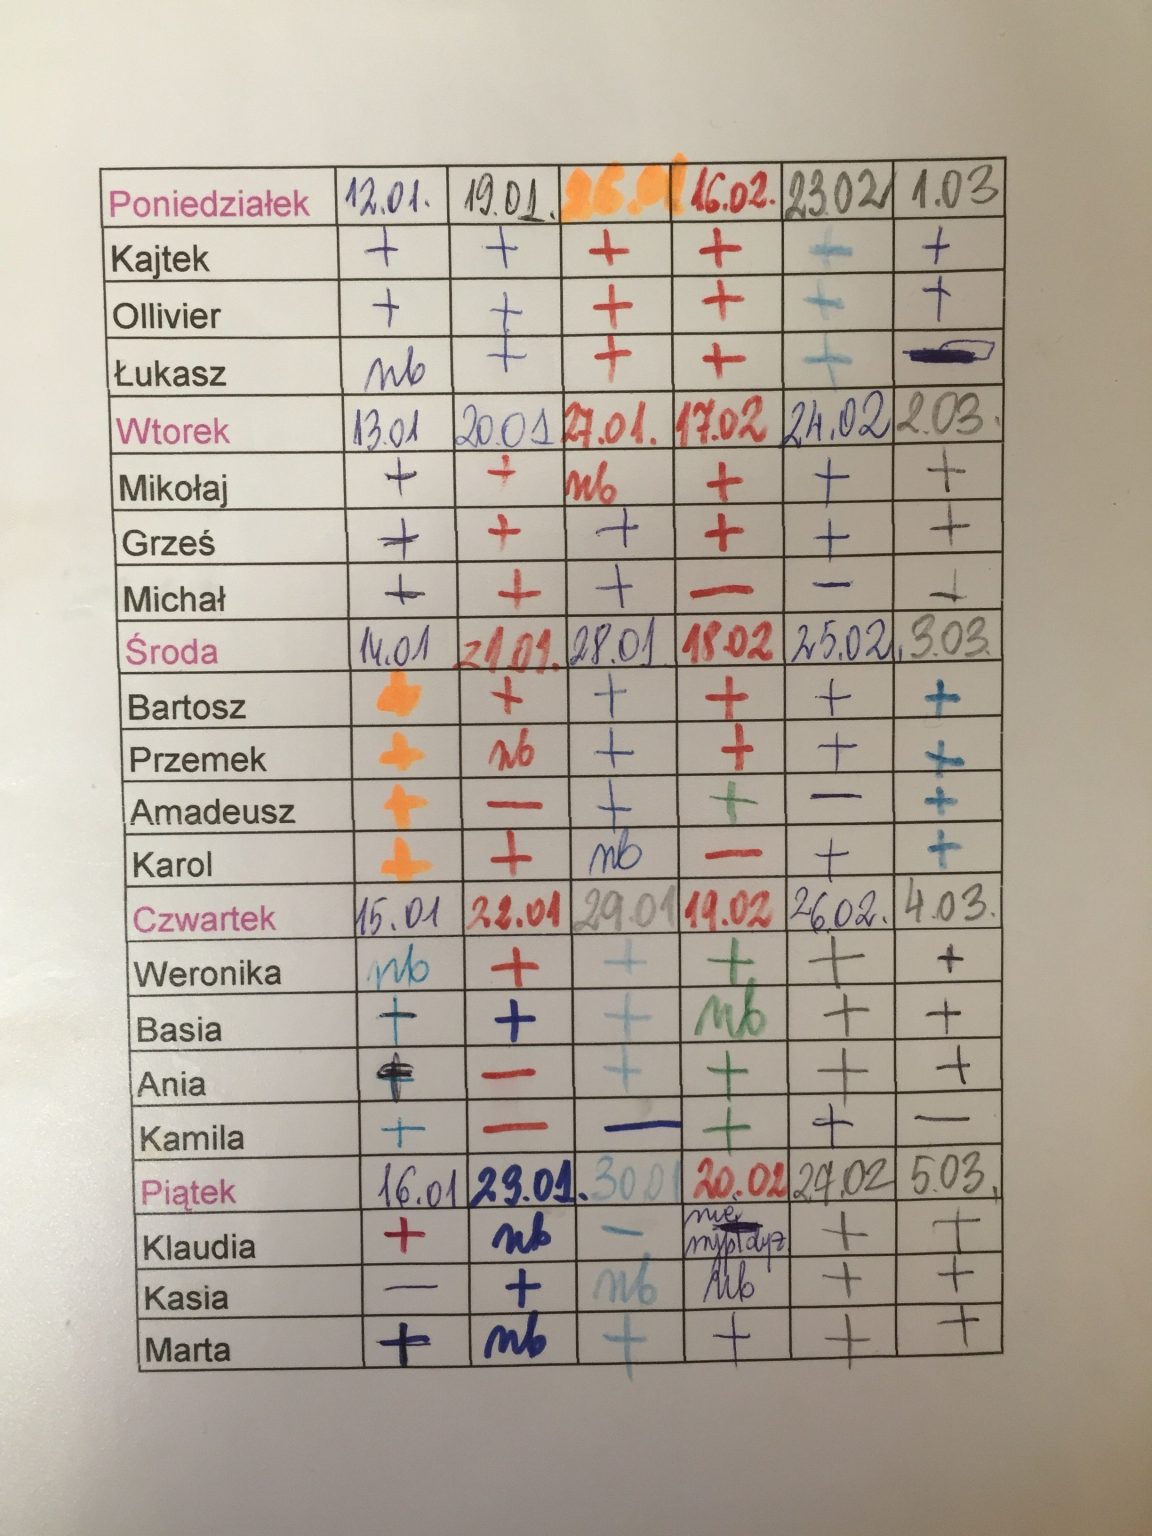 Poniedziałek 12.01. 19.01. 26.01 16.02. 23.02 1.03
Kajtek + + + + + +
Ollivier + + + + + +
Łukasz nb + + + + —
Wtorek 13.01 20.01 27.01. 17.02 24.02 2.03.
Mikołaj + + nb + + +
Grześ + + + + + +
Michał + + + — — +
Środa 14.01 21.01. 28.01 18.02 25.02. 3.03.
Bartosz + + + + + +
Przemek + nb + + + +
Amadeusz + — + + — +
Karol + + nb — + +
Czwartek 15.01 22.01 29.01 19.02 26.02. 4.03.
Weronika nb + + + + +
Basia + + + nb + +
Ania + — + + + +
Kamila + — — + + —
Piątek 16.01 23.01. 30.01 20.02 27.02 5.03.
Klaudia + nb — nie + +
Kasia — + nb nb + +
Marta + nb + + + +